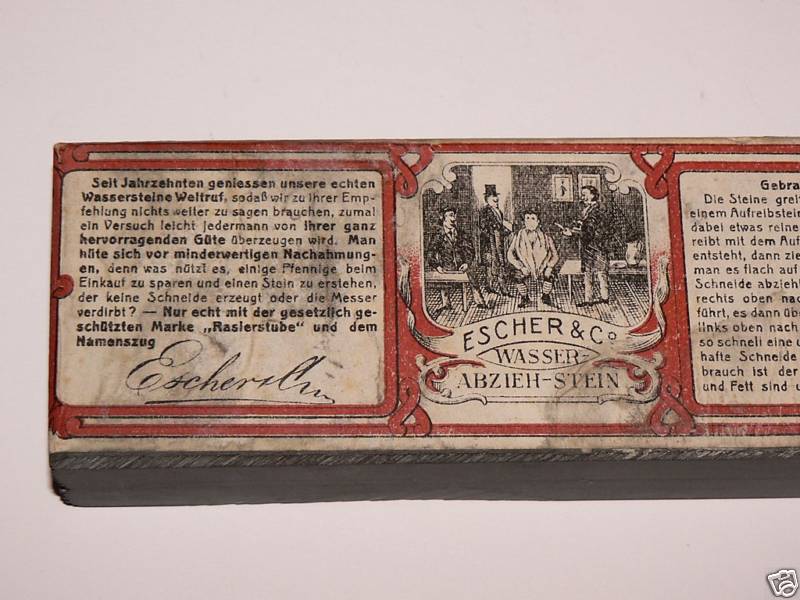 Seit Jahrzehnten geniessen unsere echten
Wassersteine Weltruf, sodaß wir zu ihrer Emp-
fehlung nichts weiter zu sagen brauchen, zumal
ein Versuch leicht Jedermann von ihrer ganz
hervorragenden Güte überzeugen wird. Man
hüte sich vor minderwertigen Nachahmung-
en, denn was nützt es, einige Pfennige beim
Einkauf zu sparen und einen Stein zu erstehen,
der keine Schneide erzeugt oder die Messer
verdirbt? — Nur echt mit der gesetzlich ge-
schützten Marke „Rasierstube" und dem
Namenszug
Escher & Co
ESCHER & Co
WASSER-
ABZIEH-STEIN
Gebra
Die Steine grei
einem Aufreibstein
dabei etwas reine
reibt mit dem Aufr
entsteht, dann zie
man es flach auf
Schneide abzieht
rechts oben nac
führt, es dann übe
links oben nach
so schnell eine u
hafte Schneide
brauch ist der
und Fett sind u
ebY